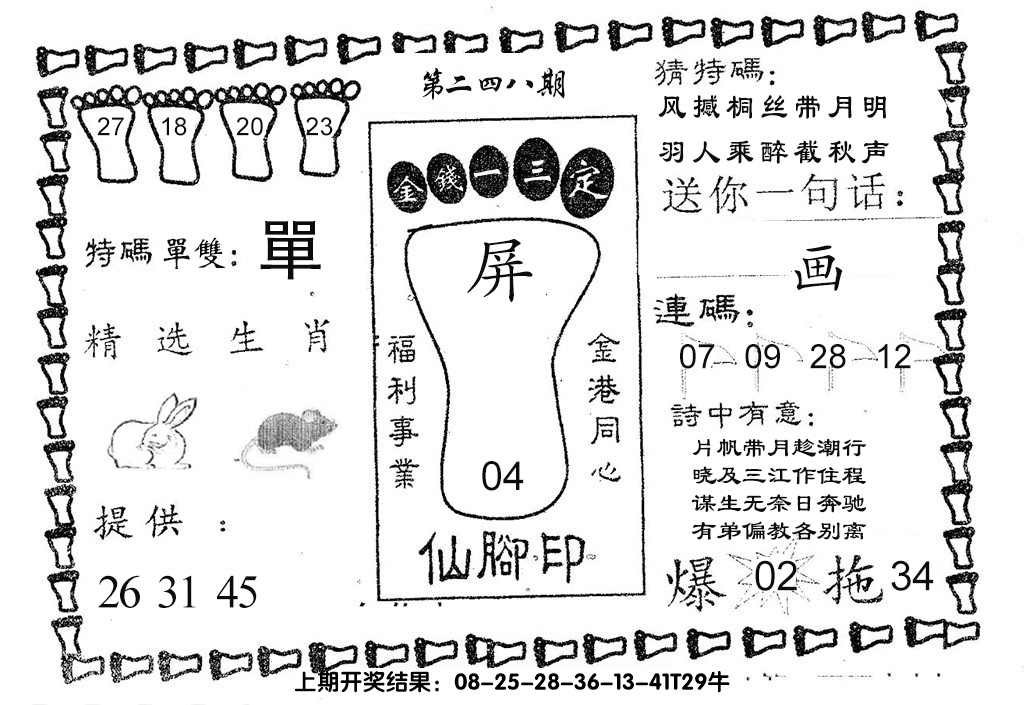 第二四八期
27 18 20 23
特碼單雙: 單
精选生肖
提供:
26 31 45
金錢一三定
屏
福利事業
金港同心
04
仙腳印
猜特碼:
风撼桐丝带月明
羽人乘醉截秋声
送你一句话:
画
連碼:
07 09 28 12
詩中有意:
片帆带月趁潮行
晓及三江作住程
谋生无奈日奔驰
有弟偏教各别离
爆 02 拖 34
上期开奖结果：08-25-28-36-13-41T29牛